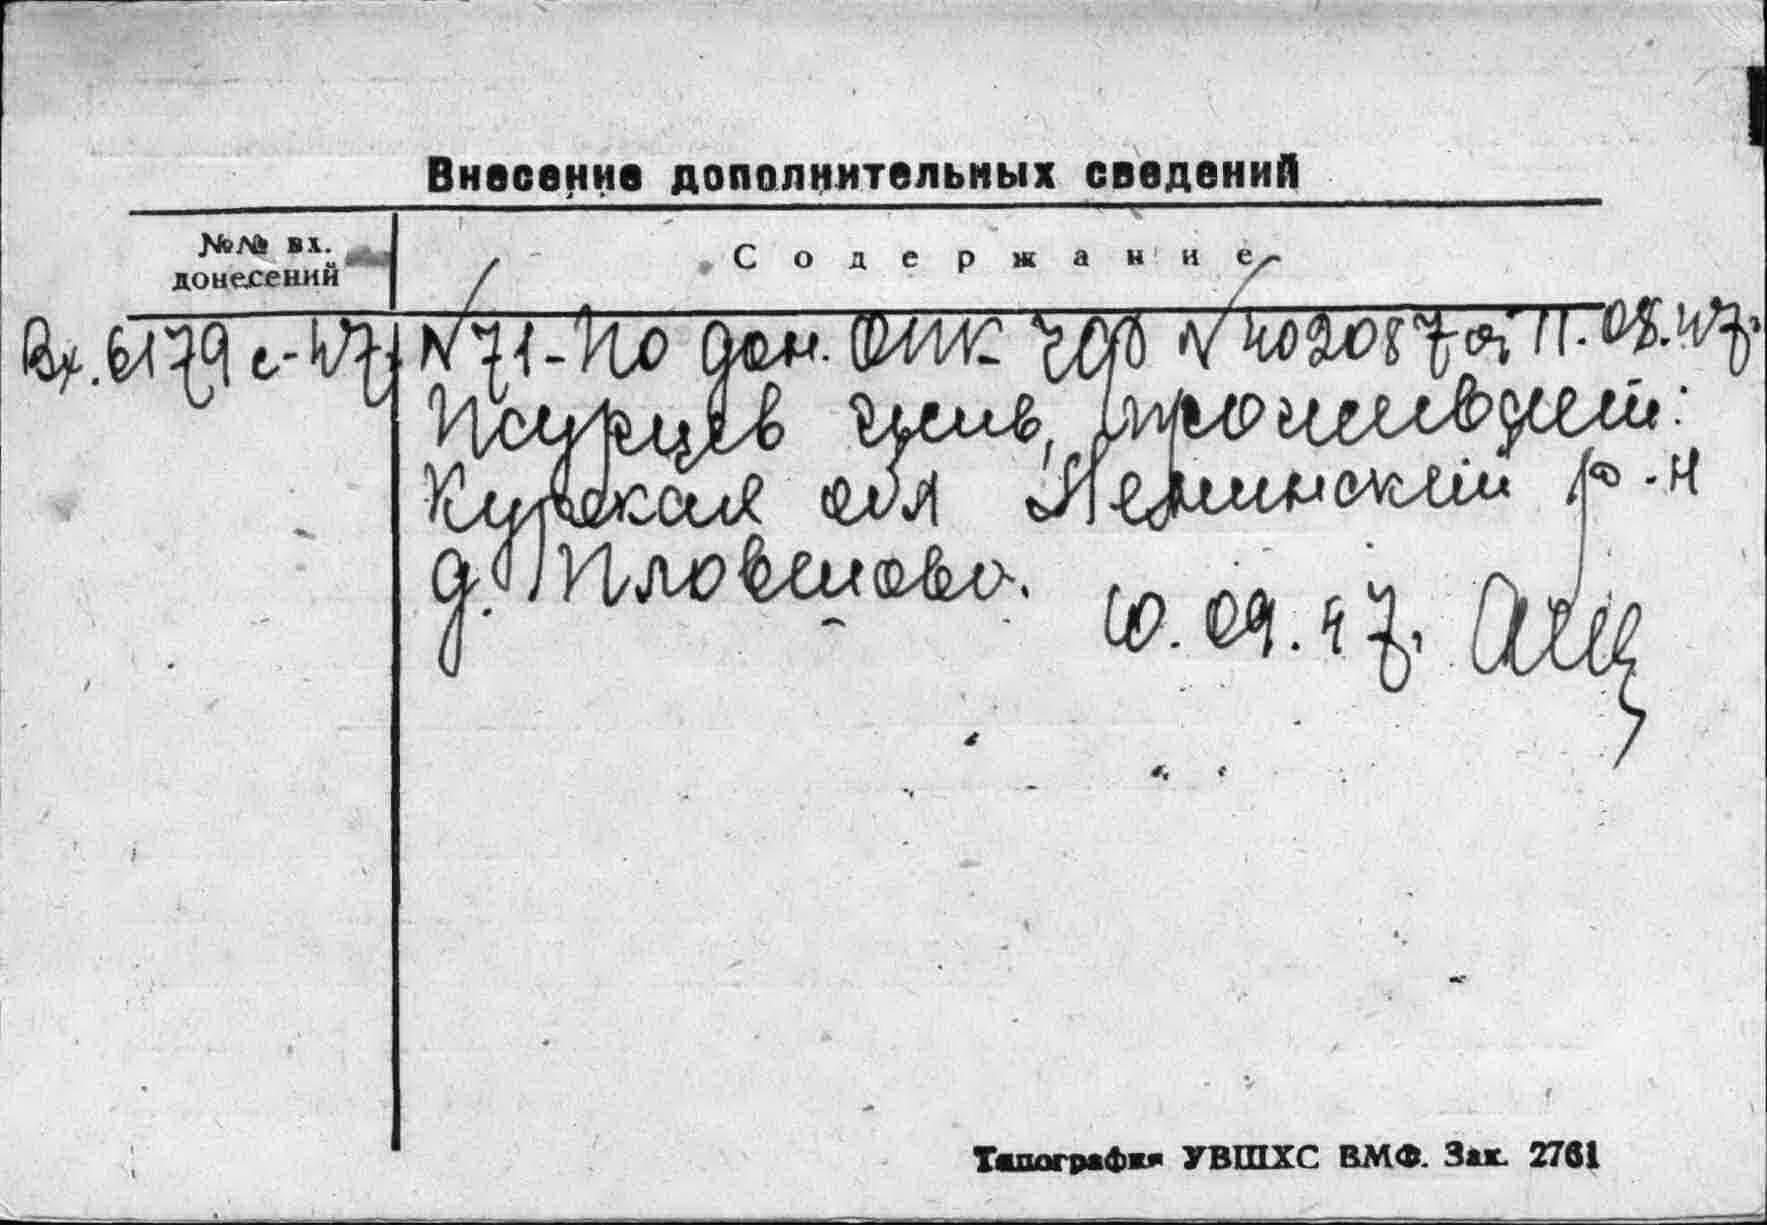 Внесение дополнительных сведений
№№ вх.
донесений
Содержание
Вх. 6179 с-47г
N71-По дон. ОПК ЧФ N402087 от 11.08.47г.
Псурцев жив, проживает:
Курская обл Ленинский р-н
д.
10.09.47г.
Типография УВШХС ВМФ. Зак. 2761